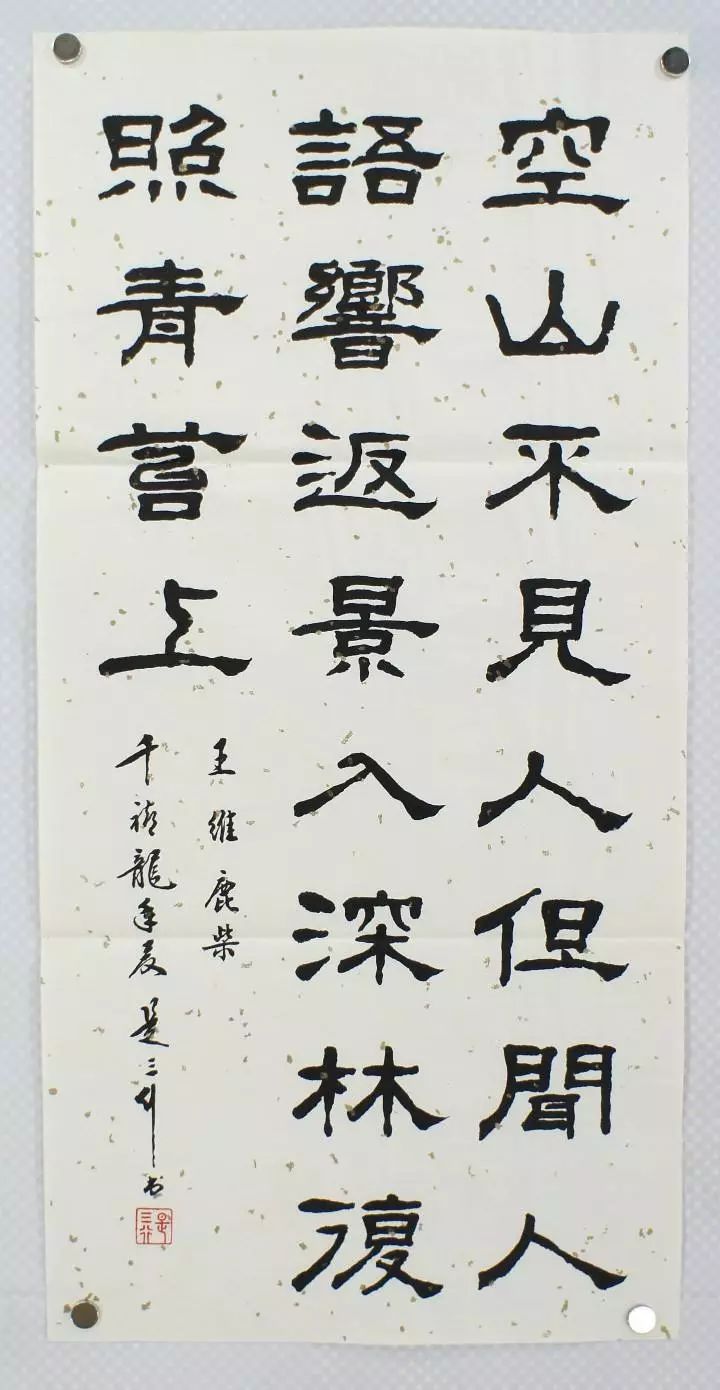 空山不見人但聞人
語響返景入深林復
照青苔上
王維鹿柴
千禧龍年夏 是三行书
是三行